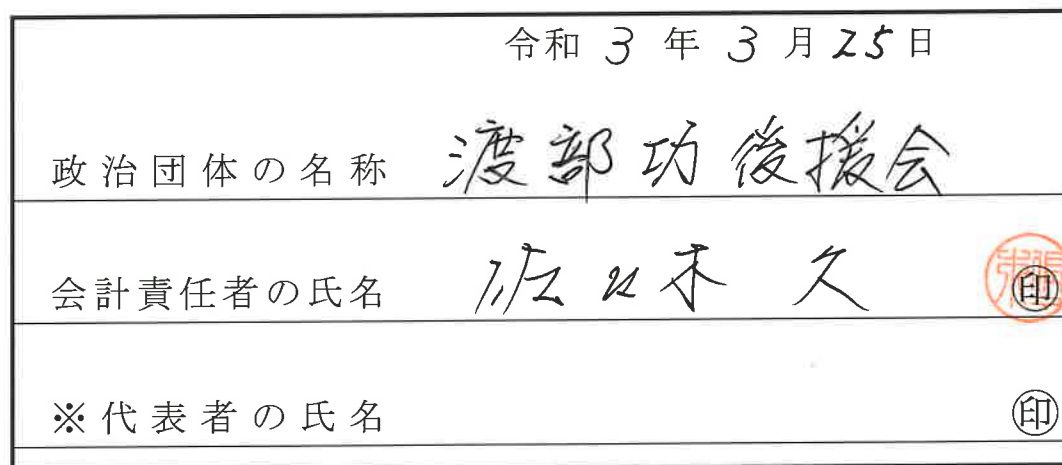 令和 3 年 3 月 25 日
政治団体の名称 渡部功後援会
会計責任者の氏名 佐々木 久 印
※代表者の氏名 印